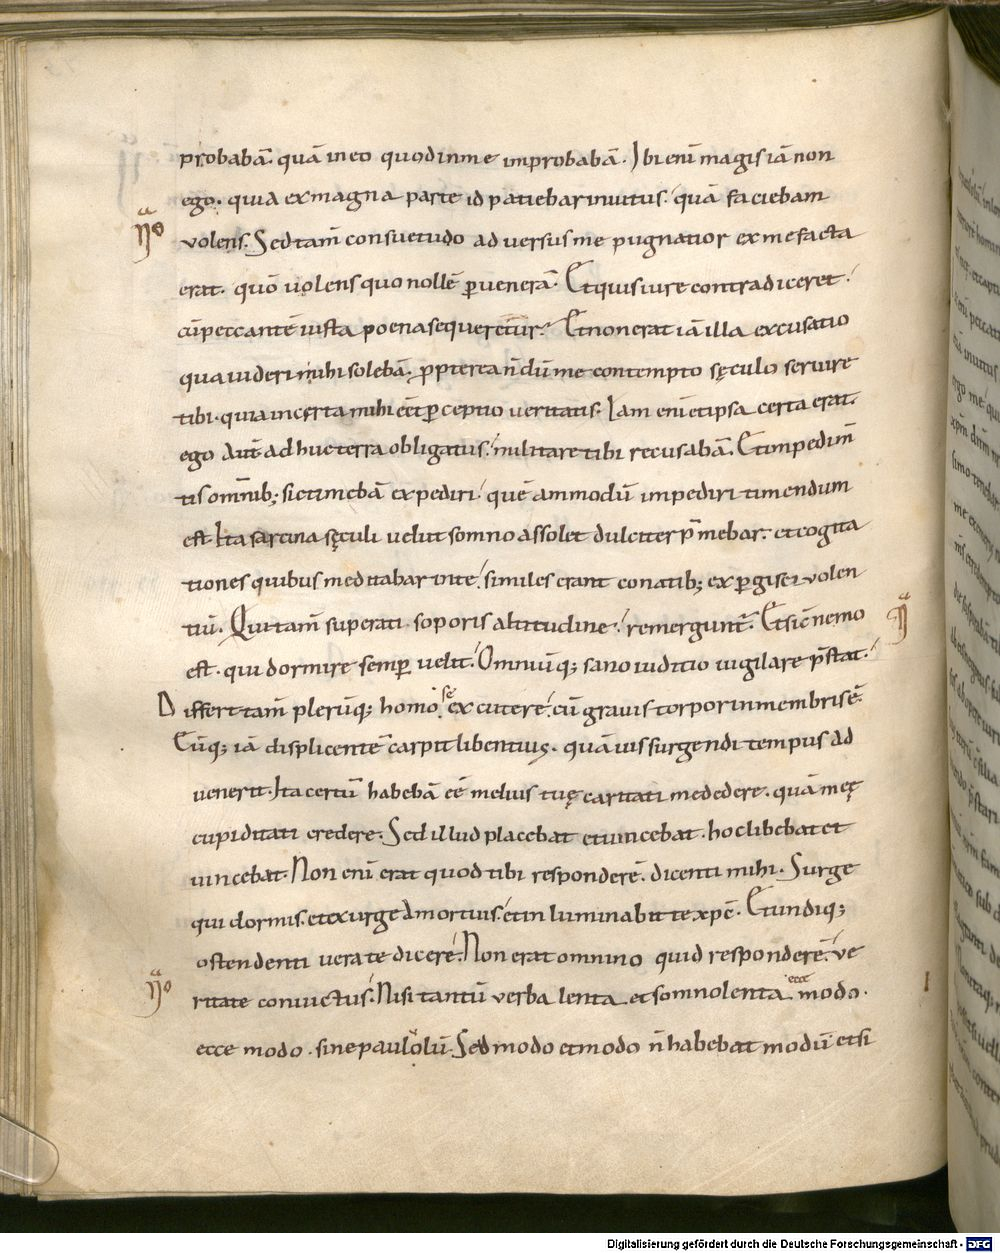 probabā. quā in eo quod in me improbabā. Ibi enī magis iā non
ego. quia ex magna parte id patiebar inuitus. quā faciebam
volens. Sed tam̄ consuetudo aduersus me pugnatior ex me facta
erat. quō uolens quo nollē ꝑuenerā. Et quis iure contradiceret.
cū peccantē iusta poena sequeretur. Et non erat iā illa excusatio
qua uideri mihi solebā. ꝓpterea n̄dū me contempto sęculo seruire
tibi. quia incerta mihi eēt ꝑceptio ueritatis. Iam enī et ipsa certa erat.
ego autē adhuc terra obligatus. militare tibi recusabā. Et impedim̄
tis om̄ib; sic timebā expediri. quē ammodū impediri timendum
est. Ita sarcina sęculi uelut somno assolet dulciter p̄mebar. et cogita
tiones quibus meditabar in te. similes erant conatib; exꝑgisci uolen
tiū. Qui tam̄ superati soporis altitudine. remergunt̄. Et sic̄ nemo
est. qui dormire semꝑ uelit. Omniūq; sano iuditio uigilare p̄stat.
Differt tam̄ plerūq; homo sē excutere. cū grauis torpor in membris ē.
Eūq; iā displicentē carpit libentius. quāuis surgendi tempus ad
uenerit. Ita certū habebā eē melius tuę caritati me dedere. quā meę
cupiditati credere. Sed illud placebat et uincebat. hoc libebat et
uincebat. Non enī erat quod tibi responderē. dicenti mihi. Surge
qui dormis. et exurge a mortuis. et inluminabit te xp̄c. Et undiq;
ostendenti uera te dicere. Non erat omnino quid responderē. ve
ritate conuictus. Nisi tantū verba lenta et somnolenta ecce modo.
ecce modo. sine paululū. Sed modo et modo n̄ habebat modū. et si
Digitalisierung gefördert durch die Deutsche Forschungsgemeinschaft - DFG